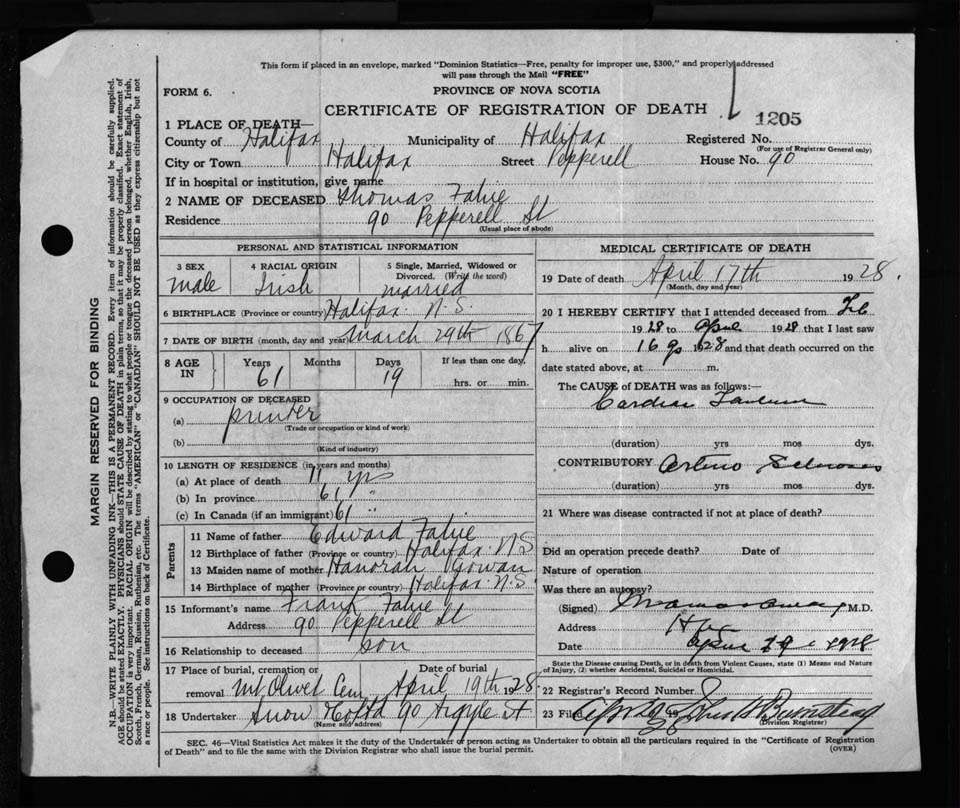 This form if placed in an envelope, marked "Dominion Statistics—Free, penalty for improper use, $300," and properly addressed
will pass through the Mail "FREE"
FORM 6.
PROVINCE OF NOVA SCOTIA
CERTIFICATE OF REGISTRATION OF DEATH
1205
1 PLACE OF DEATH—
County of Halifax Municipality of Halifax Registered No.
(For use of Registrar General only)
City or Town Halifax Street Pepperell House No. 90
If in hospital or institution, give name
2 NAME OF DECEASED Thomas Fahie
Residence 90 Pepperell St
(Usual place of abode)
PERSONAL AND STATISTICAL INFORMATION
3 SEX 4 RACIAL ORIGIN 5 Single, Married, Widowed or
Divorced. (Write the word)
Male Irish married
6 BIRTHPLACE (Province or country) Halifax N.S.
7 DATE OF BIRTH (month, day and year) March 29th 1867
8 AGE IN Years Months Days If less than one day,
61 19 hrs. or min.
9 OCCUPATION OF DECEASED
(a) printer
(Trade or occupation or kind of work)
(b)
(Kind of industry)
10 LENGTH OF RESIDENCE (in years and months)
(a) At place of death 11 yrs
(b) In province 61 "
(c) In Canada (if an immigrant) 61 "
Parents
11 Name of father Edward Fahie
12 Birthplace of father (Province or country) Halifax N S
13 Maiden name of mother Hanorah Gowan
14 Birthplace of mother (Province or country) Halifax N.S.
15 Informant's name Frank Fahie
Address 90 Pepperell St
16 Relationship to deceased son
17 Place of burial, cremation or Date of burial
removal Mt Olivet Cem April 19th 1928
18 Undertaker Snow 90 Argyle St
(Name and address)
MEDICAL CERTIFICATE OF DEATH
19 Date of death April 17th 1928.
(Month, day and year)
20 I HEREBY CERTIFY that I attended deceased from Feb
1928 to April 1928 that I last saw
h alive on 16 1928 and that death occurred on the
date stated above, at m.
The CAUSE of DEATH was as follows:—
Cardiac Failure
(duration) yrs mos dys.
CONTRIBUTORY Arterio Sclerosis
(duration) yrs mos dys.
21 Where was disease contracted if not at place of death?
Did an operation precede death? Date of
Nature of operation
Was there an autopsy?
(Signed) M.D.
Address Hfx
Date April 1928
State the Disease causing Death, or in death from Violent Causes, state (1) Means and Nature
of Injury, (2) whether Accidental, Suicidal or Homicidal.
22 Registrar's Record Number
23 Filed 28 John Bumstead
(Division Registrar)
SEC. 46—Vital Statistics Act makes it the duty of the Undertaker or person acting as Undertaker to obtain all the particulars required in the "Certificate of Registration
of Death" and to file the same with the Division Registrar who shall issue the burial permit.
(OVER)
MARGIN RESERVED FOR BINDING
N.B.—WRITE PLAINLY WITH UNFADING INK—THIS IS A PERMANENT RECORD. Every item of information should be carefully supplied.
AGE should be stated EXACTLY. PHYSICIANS should STATE CAUSE OF DEATH in plain terms, so that it may be properly classified. Exact statement of
OCCUPATION is very important. RACIAL ORIGIN will be described by stating to what people or tongue the deceased person belonged, whether English, Irish,
Scotch, French, German, Russian, Ruthenian, etc. The terms "AMERICAN" or "CANADIAN" SHOULD NOT BE USED as they express citizenship but not
a race or people. See instructions on back of Certificate.